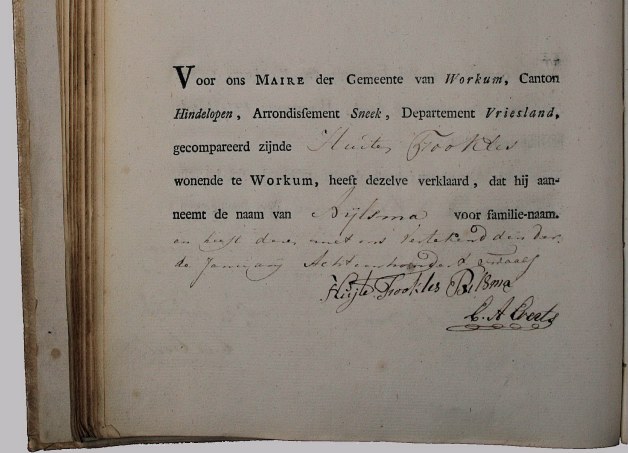 Voor ons MAIRE der Gemeente van Workum, Canton
Hindelopen, Arrondissement Sneek, Departement Vriesland,
gecompareerd zijnde Huite Fookles
wonende te Workum, heeft dezelve verklaard, dat hij aan-
neemt de naam van Bijlsma voor familie-naam.
en heeft deze met ons vertekend den
de January Achtienhonderd twaalf
Huijte Fookles Bilsma